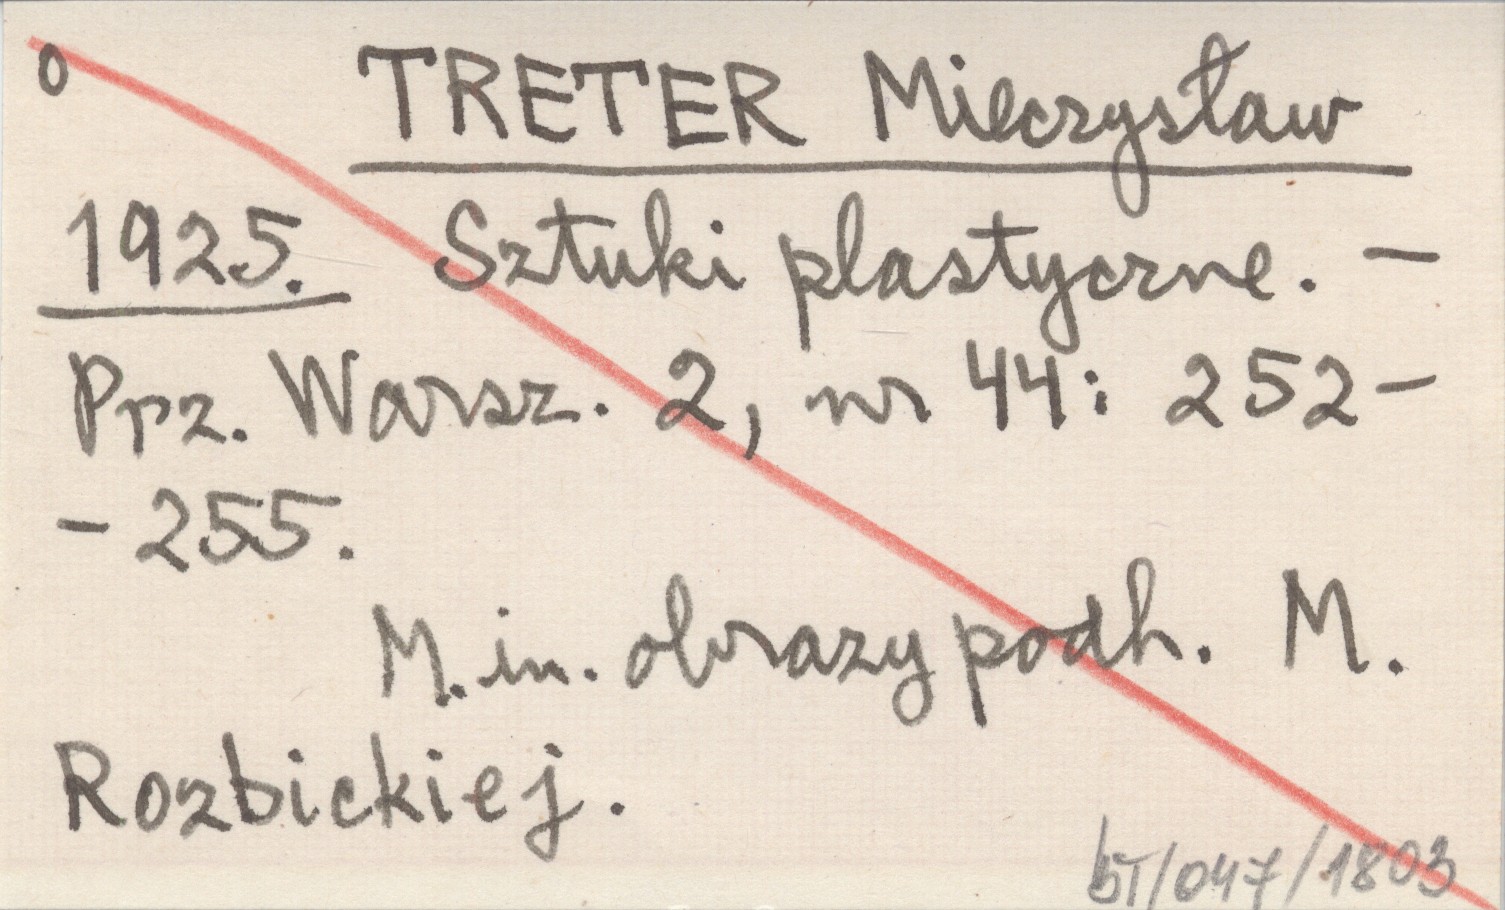 o TRETER Mieczysław
1925. Sztuki plastyczne. —
Prz. Warsz. 2, nr 44: 252-
- 255.
M. in. obrazy podh. M.
Rozbickiej.
bT/047/1803